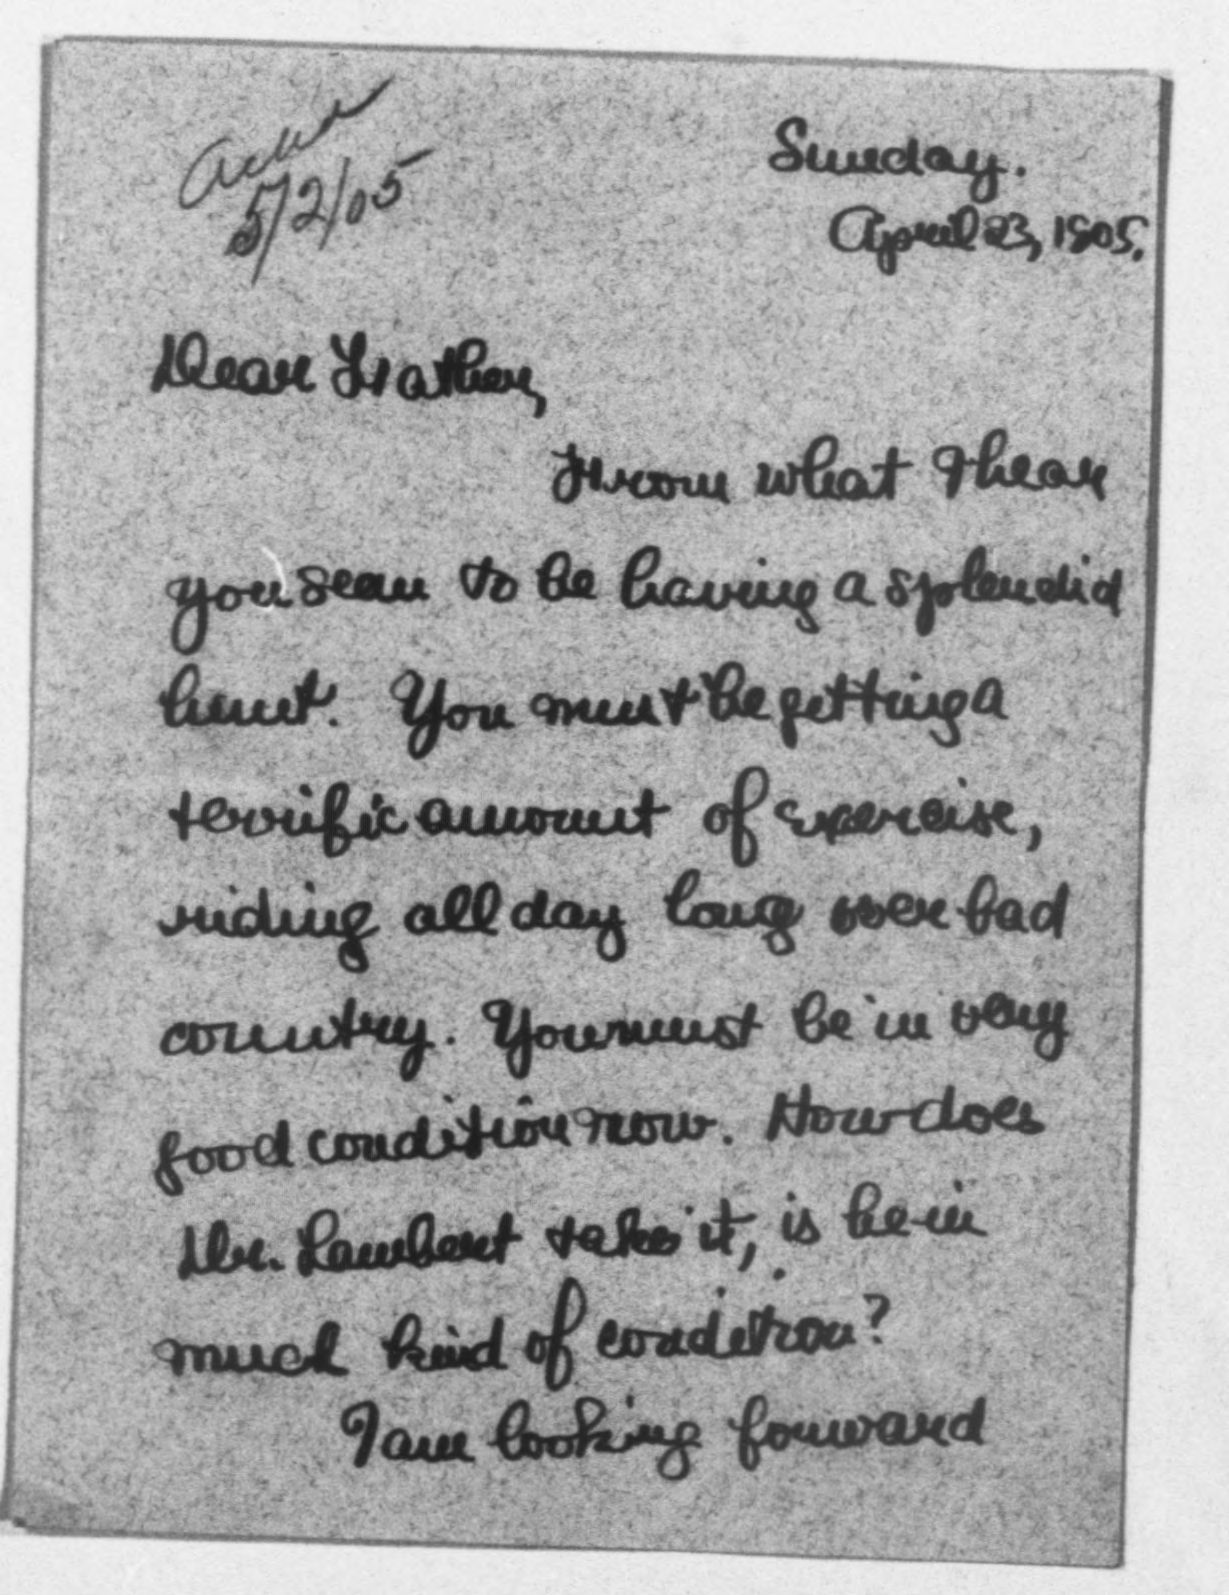 Ackd
5/2/05
Sunday.
April 23, 1905.
Dear Father,
From what I hear
you seem to be having a splendid
hunt. You must be getting a
terrific amount of exercise,
riding all day long over bad
country. You must be in very
good condition now. How does
Dr. Lambert take it, is he in
much kind of condition?
I am looking forward